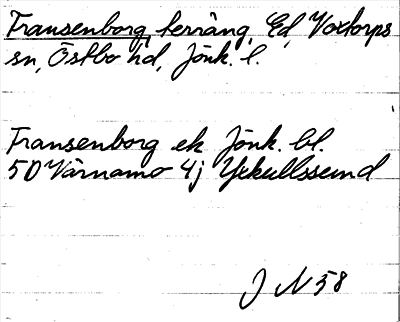 Fransenborg, terräng, Ed, Voxtorps
sn, Östbo hd, Jönk. l.
Fransenborg ek Jönk. bl.
50 Värnamo 4j Ykullssund
J N 58